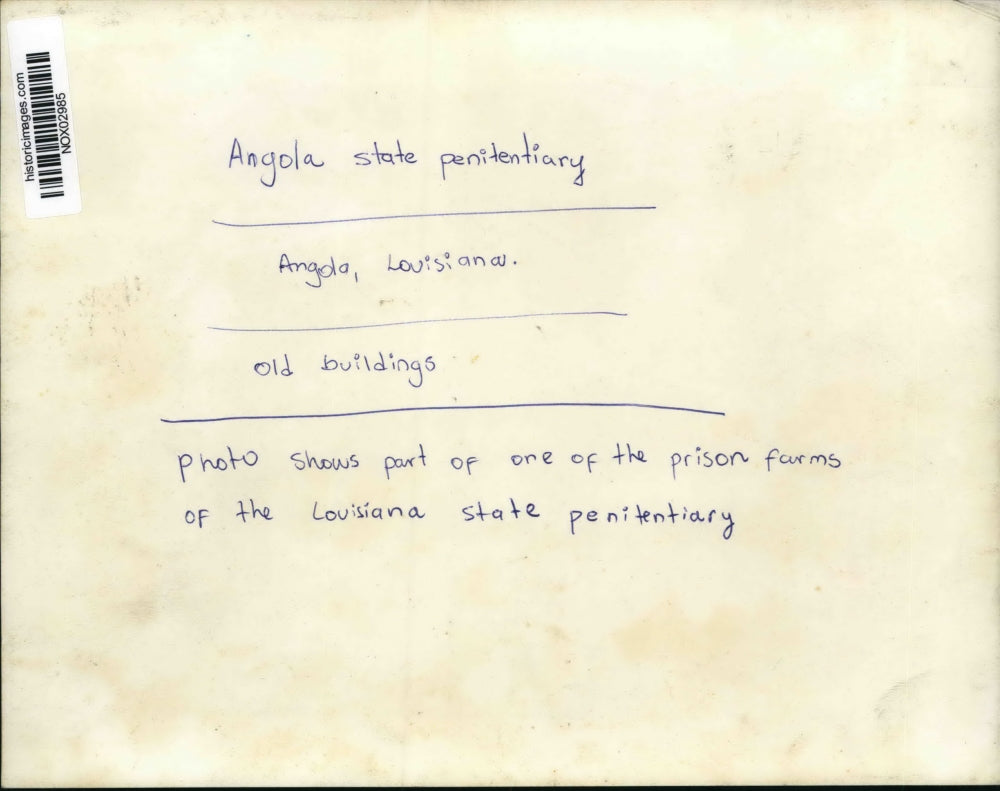 historicimages.com
NOX02985
Angola state penitentiary
Angola, Louisiana.
old buildings
photo shows part of one of the prison farms
of the Louisiana state penitentiary